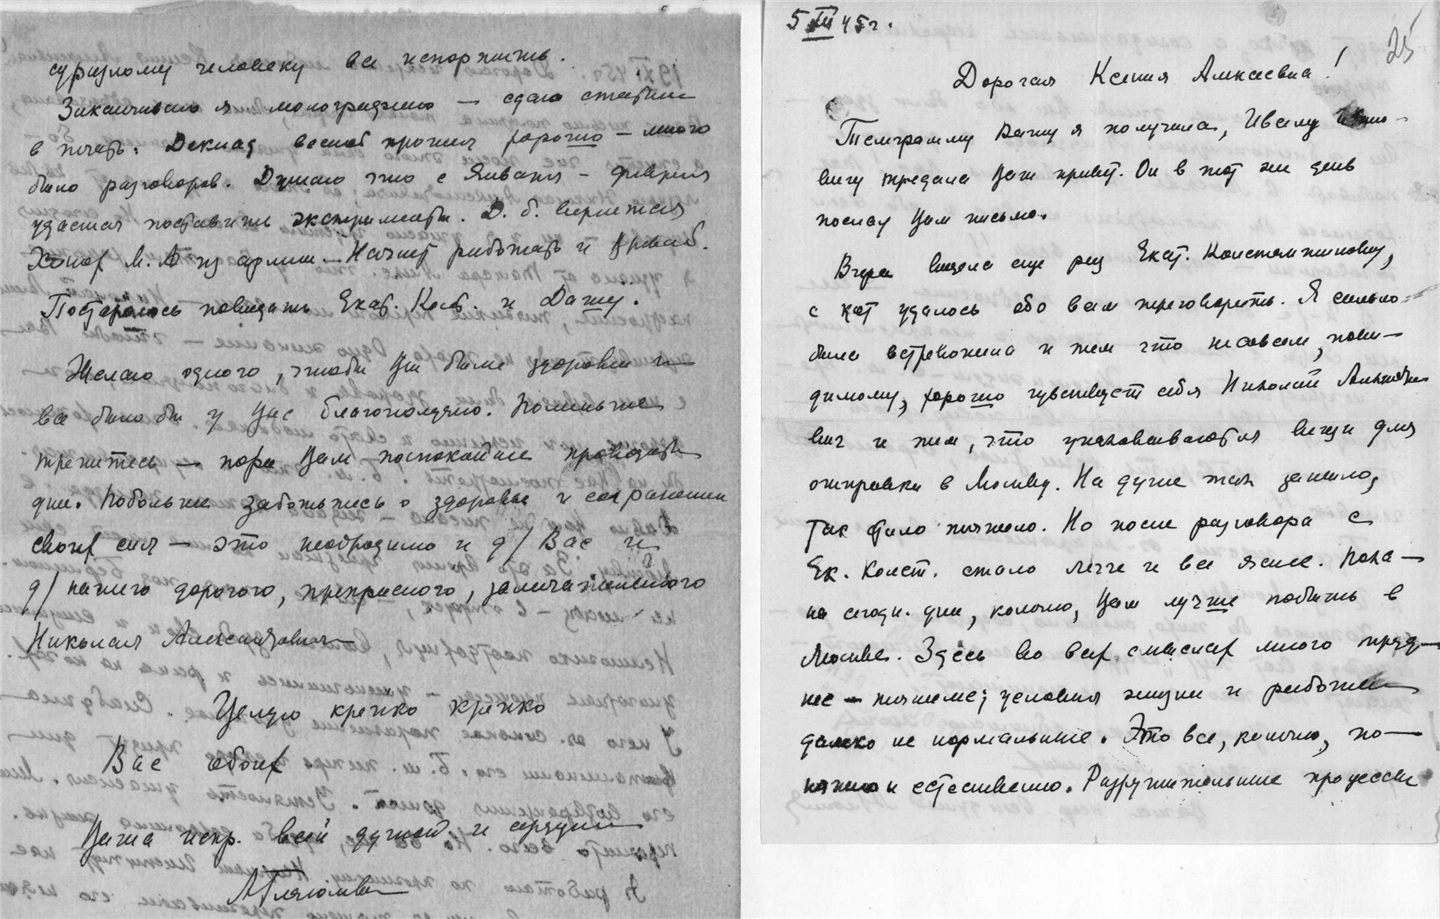 человеку все испортить.
Заканчиваю я монографию — сдаю статьи
в печать. Доклад весной прошел хорошо — много
было разговоров. Думаю что с Января – февраля
удастся поставить эксперименты. Д. б. вернется
М. А. из армии — Начнет работать и
Постараюсь повидать Екат. Конст. и Дашу.
Желаю одного, чтобы Вы были здоровы и
все было бы у Вас благополучно. Поменьше
— пора Вам поспокойнее проводить
дни. Побольше заботьтесь о здоровье и сохранении
своих сил — это необходимо и д/ Вас и
д/ нашего дорогого, прекрасного, замечательного
Николая Александровича
Целую крепко крепко
Вас обоих
Ваша искр. всей душой и сердцем
5 III 45 г.
25
Дорогая Ксения Алексеевна!
Телеграмму Вашу я получила, Ивану
вичу передала Ваш привет. Он в тот же день
послал Вам письмо.
Вчера видела еще раз Екат. Константиновну,
с кот удалось обо всем переговорить. Я сильно
была встревожена и тем что не совсем, пови-
димому, хорошо чувствует себя Николай Александро
вич и тем, что упаковываются вещи для
отправки в Москву. На душе так заныло,
так было тяжело. Но после разговора с
Ек. Конст. стало легче и все яснее. Пока —
на сегодн. дни, конечно, Вам лучше побыть в
Москве. Здесь во всех смыслах много труд-
нее — тяжелее; условия жизни и работы
далеко не нормальные. Это все, конечно, по-
нятно и естественно. Разрушительные процессы